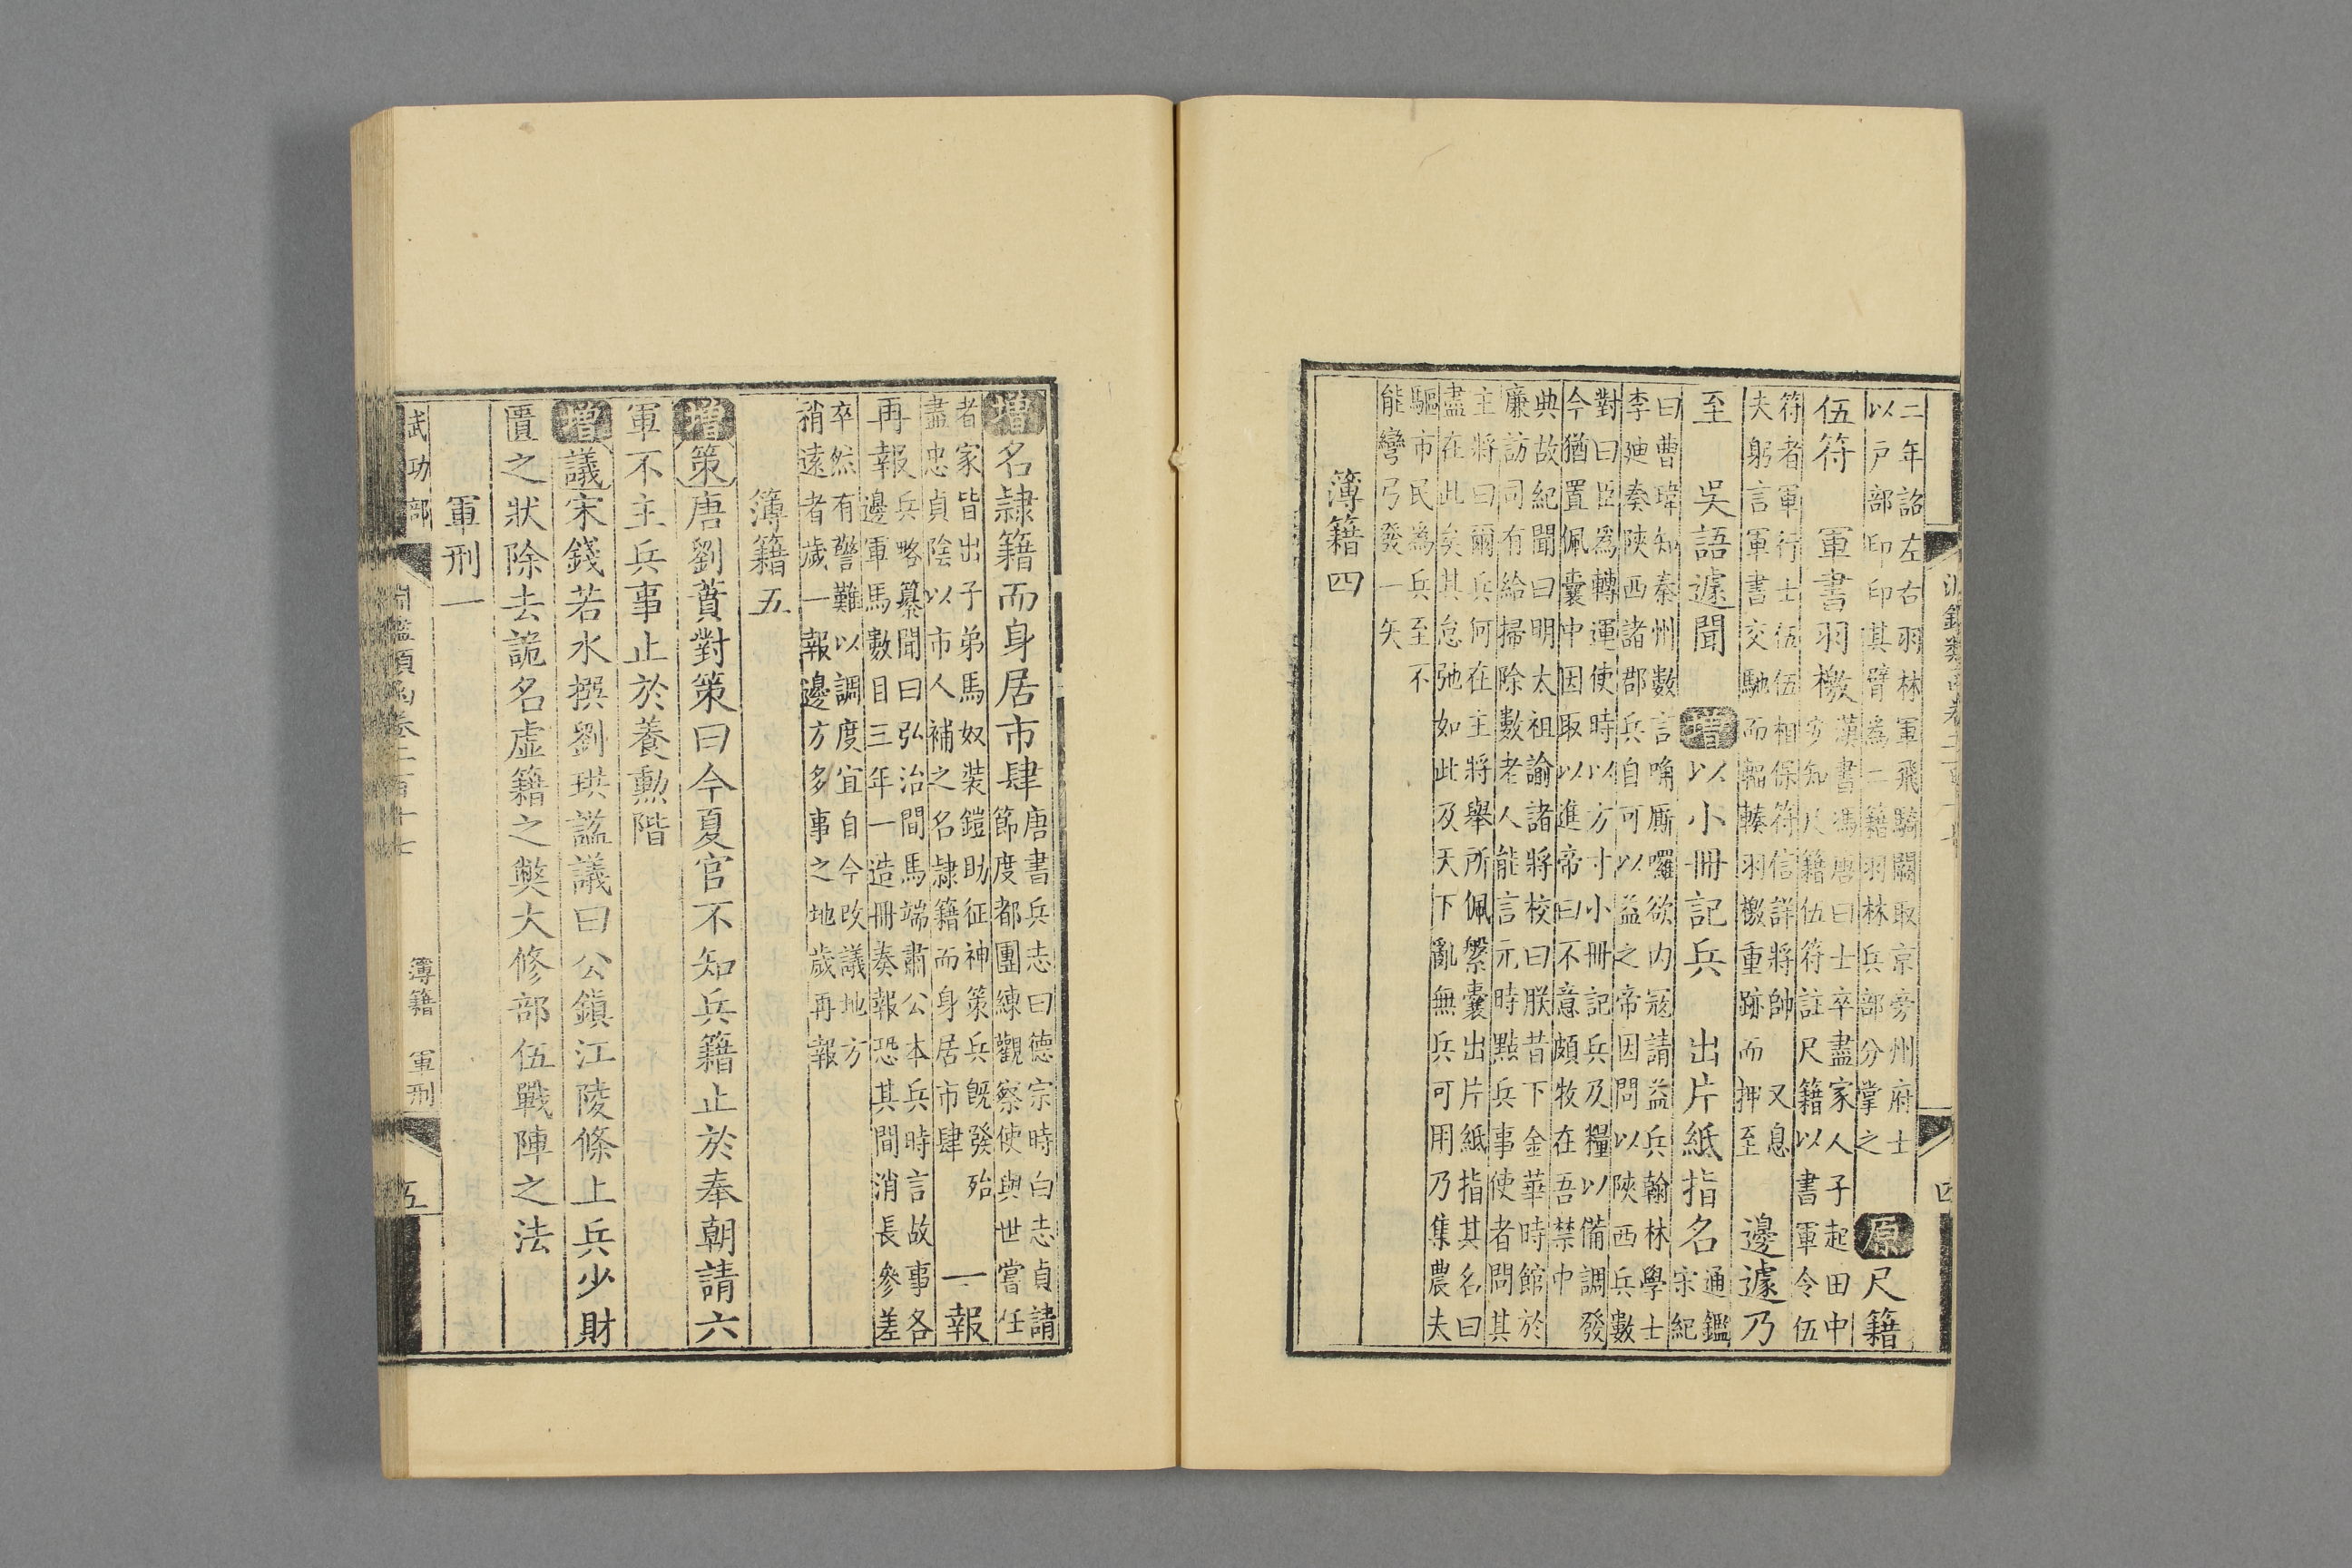 二年詔左右羽林軍飛騎闕取京旁州府士
以戶部印印其臂爲二籍羽林兵部分掌之
原尺籍
伍符　軍書羽檄
漢書馮唐曰士卒盡家人子起田中
安知尺籍伍符註尺籍以書軍令伍
符者軍行士伍伍相保符信詳將帥　又息
夫躬言軍書交馳而輻輳羽檄重跡而押至
邊遽乃
至　吳語遽聞　增以小冊記兵　出片紙指名
通鑑
宋紀
曰曹瑋知秦州數言唃厮囉欲内寇請益兵翰林學士
李廸奏陝西諸郡兵自可以益之帝因問以陝西兵數
對曰臣爲轉運使時以方寸小冊記兵及糧以備調發
今猶置佩囊中因取以進帝曰不意頗牧在吾禁中
典故紀聞曰明太祖諭諸將校曰朕昔下金華時館於
廉訪司有給掃除數老人能言元時點兵事使者問其
主將曰爾兵何在主將舉所佩繫囊出片紙指其名曰
盡在此矣其怠弛如此及天下亂無兵可用乃集農夫
驅市民爲兵至不
能彎弓發一矢
簿籍四
增名隷籍而身居市肆
唐書兵志曰德宗時白志貞請
節度都團練觀察使與世嘗任
者家皆出子弟馬奴裝鎧助征神策兵旣發殆
盡忠貞陰以市人補之名隷籍而身居市肆
一報
再報
兵略纂聞曰弘治間馬端肅公本兵時言故事各
邊軍馬數目三年一造冊奏報恐其間消長參差
卒然有警難以調度宜自今改議地方
稍遠者歲一報邊方多事之地歲再報
簿籍五
增策唐劉蕡對策曰今夏官不知兵籍止於奉朝請六
軍不主兵事止於養勲階
增議宋錢若水撰劉珙諡議曰公鎮江陵條上兵少財
匱之狀除去詭名虛籍之獘大修部伍戰陣之法
軍刑一
武功部
淵鑑類函卷二百十七
簿籍　軍刑
五